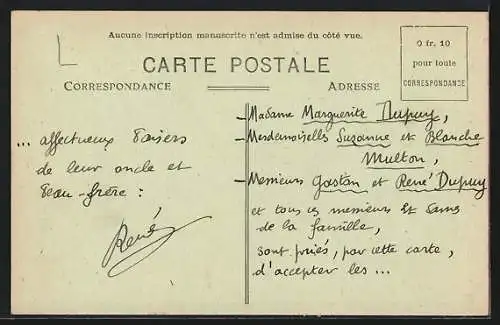 Aucune inscription manuscrite n'est admise du côté vue.
CARTE POSTALE
CORRESPONDANCE
ADRESSE
0 fr. 10
pour toute
CORRESPONDANCE
— Madame Marguerite Dupuy,
— Mesdemoiselles Suzanne et Blanche
Multon,
— Messieurs Gaston et René Dupuy
et tous ces messieurs et dames
de la famille,
sont priés, par cette carte,
d'accepter les ...
... affectueux baisers
de leur oncle et
beau-frère :
René